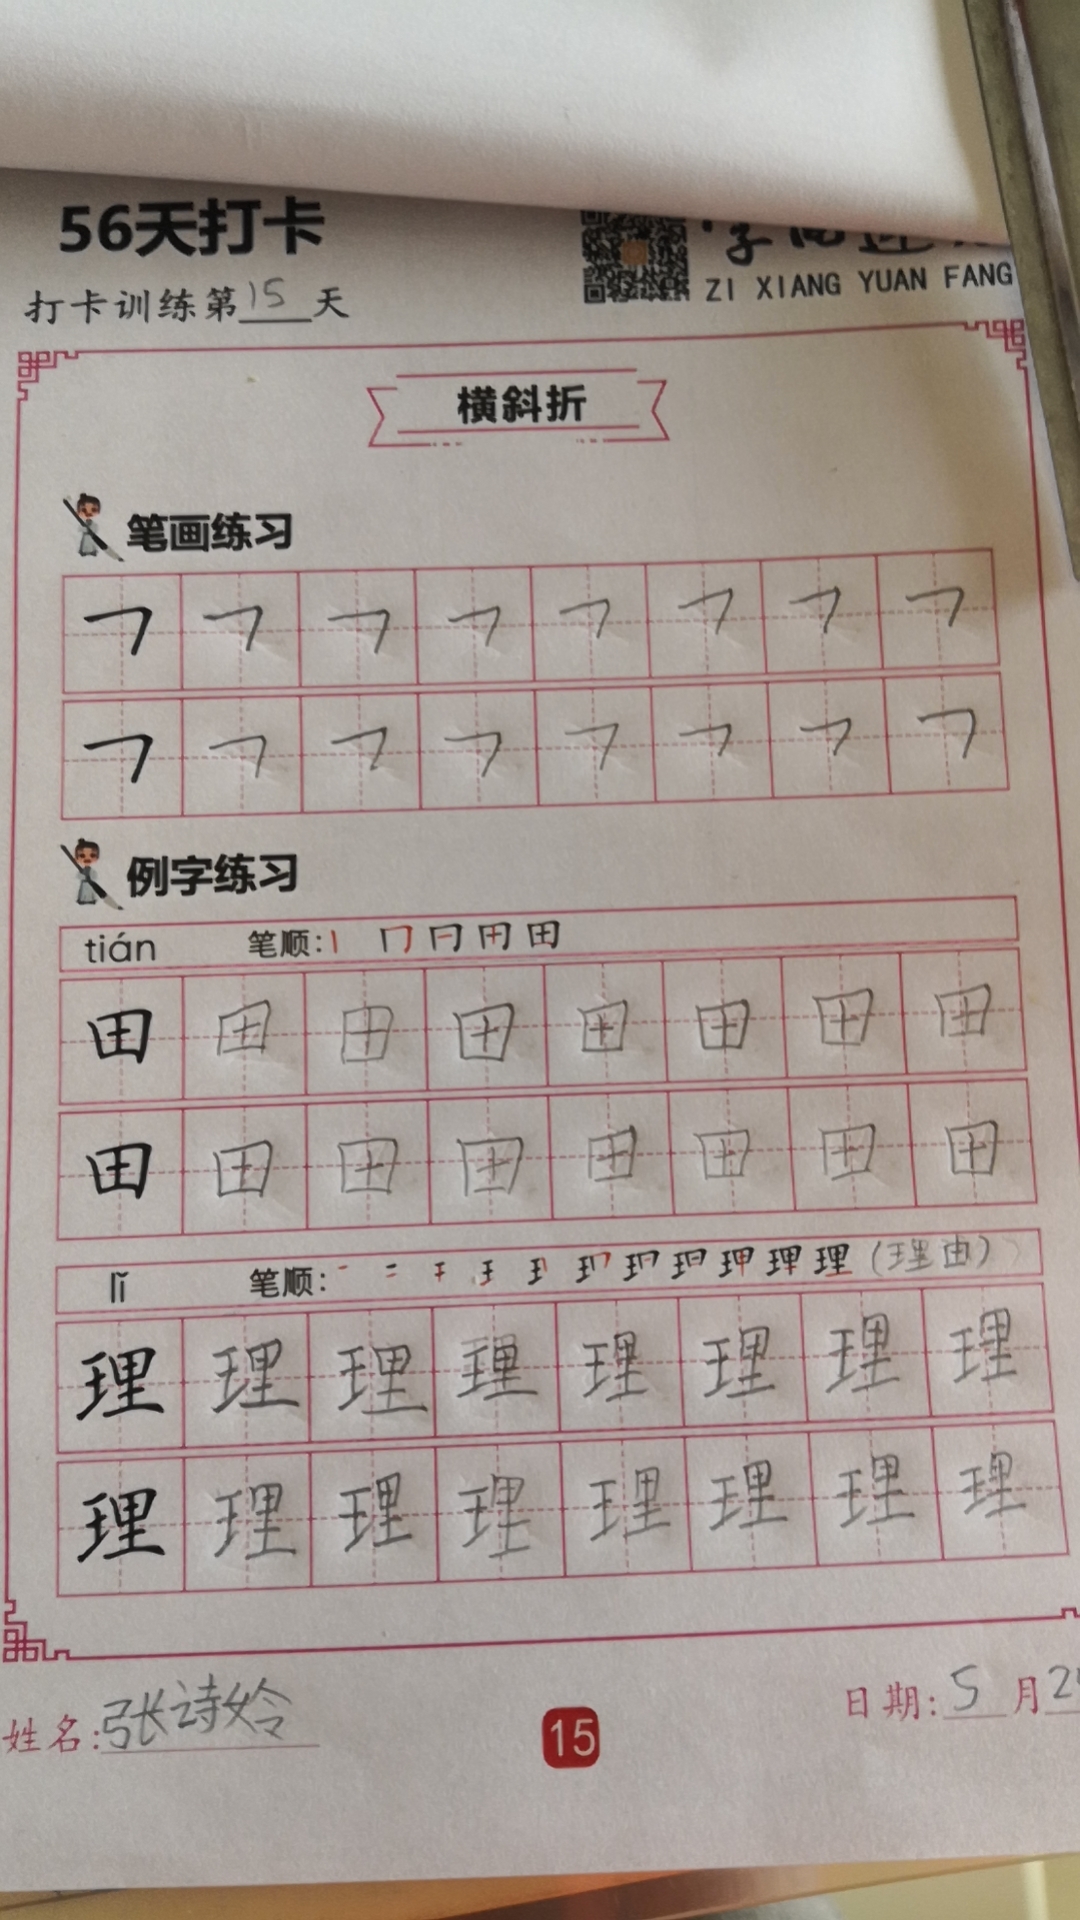 56天打卡
ZI XIANG YUAN FANG
打卡训练第15天
横斜折
笔画练习
㇕ ㇕ ㇕ ㇕ ㇕ ㇕ ㇕ ㇕
㇕ ㇕ ㇕ ㇕ ㇕ ㇕ ㇕ ㇕
例字练习
tián 笔顺: 丨 冂 冃 用 田
田 田 田 田 田 田 田 田
田 田 田 田 田 田 田 田
lǐ 笔顺: 理 (理由)
理 理 理 理 理 理 理 理
理 理 理 理 理 理 理 理
姓名:张诗姈
15
日期:5月2